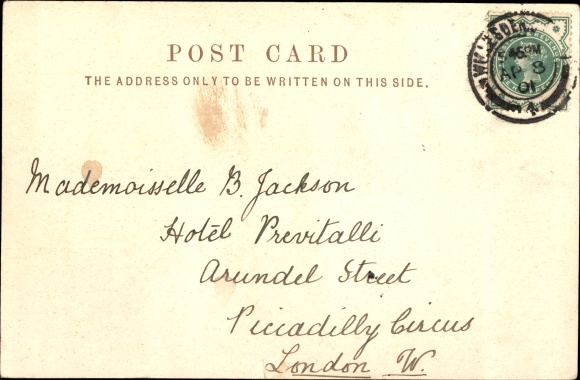 POST CARD
THE ADDRESS ONLY TO BE WRITTEN ON THIS SIDE.
WILLESDEN
AP 8
01
Mademoisselle B. Jackson
Hotel Previtalli
Arundel Street
Piccadilly Circus
London W.